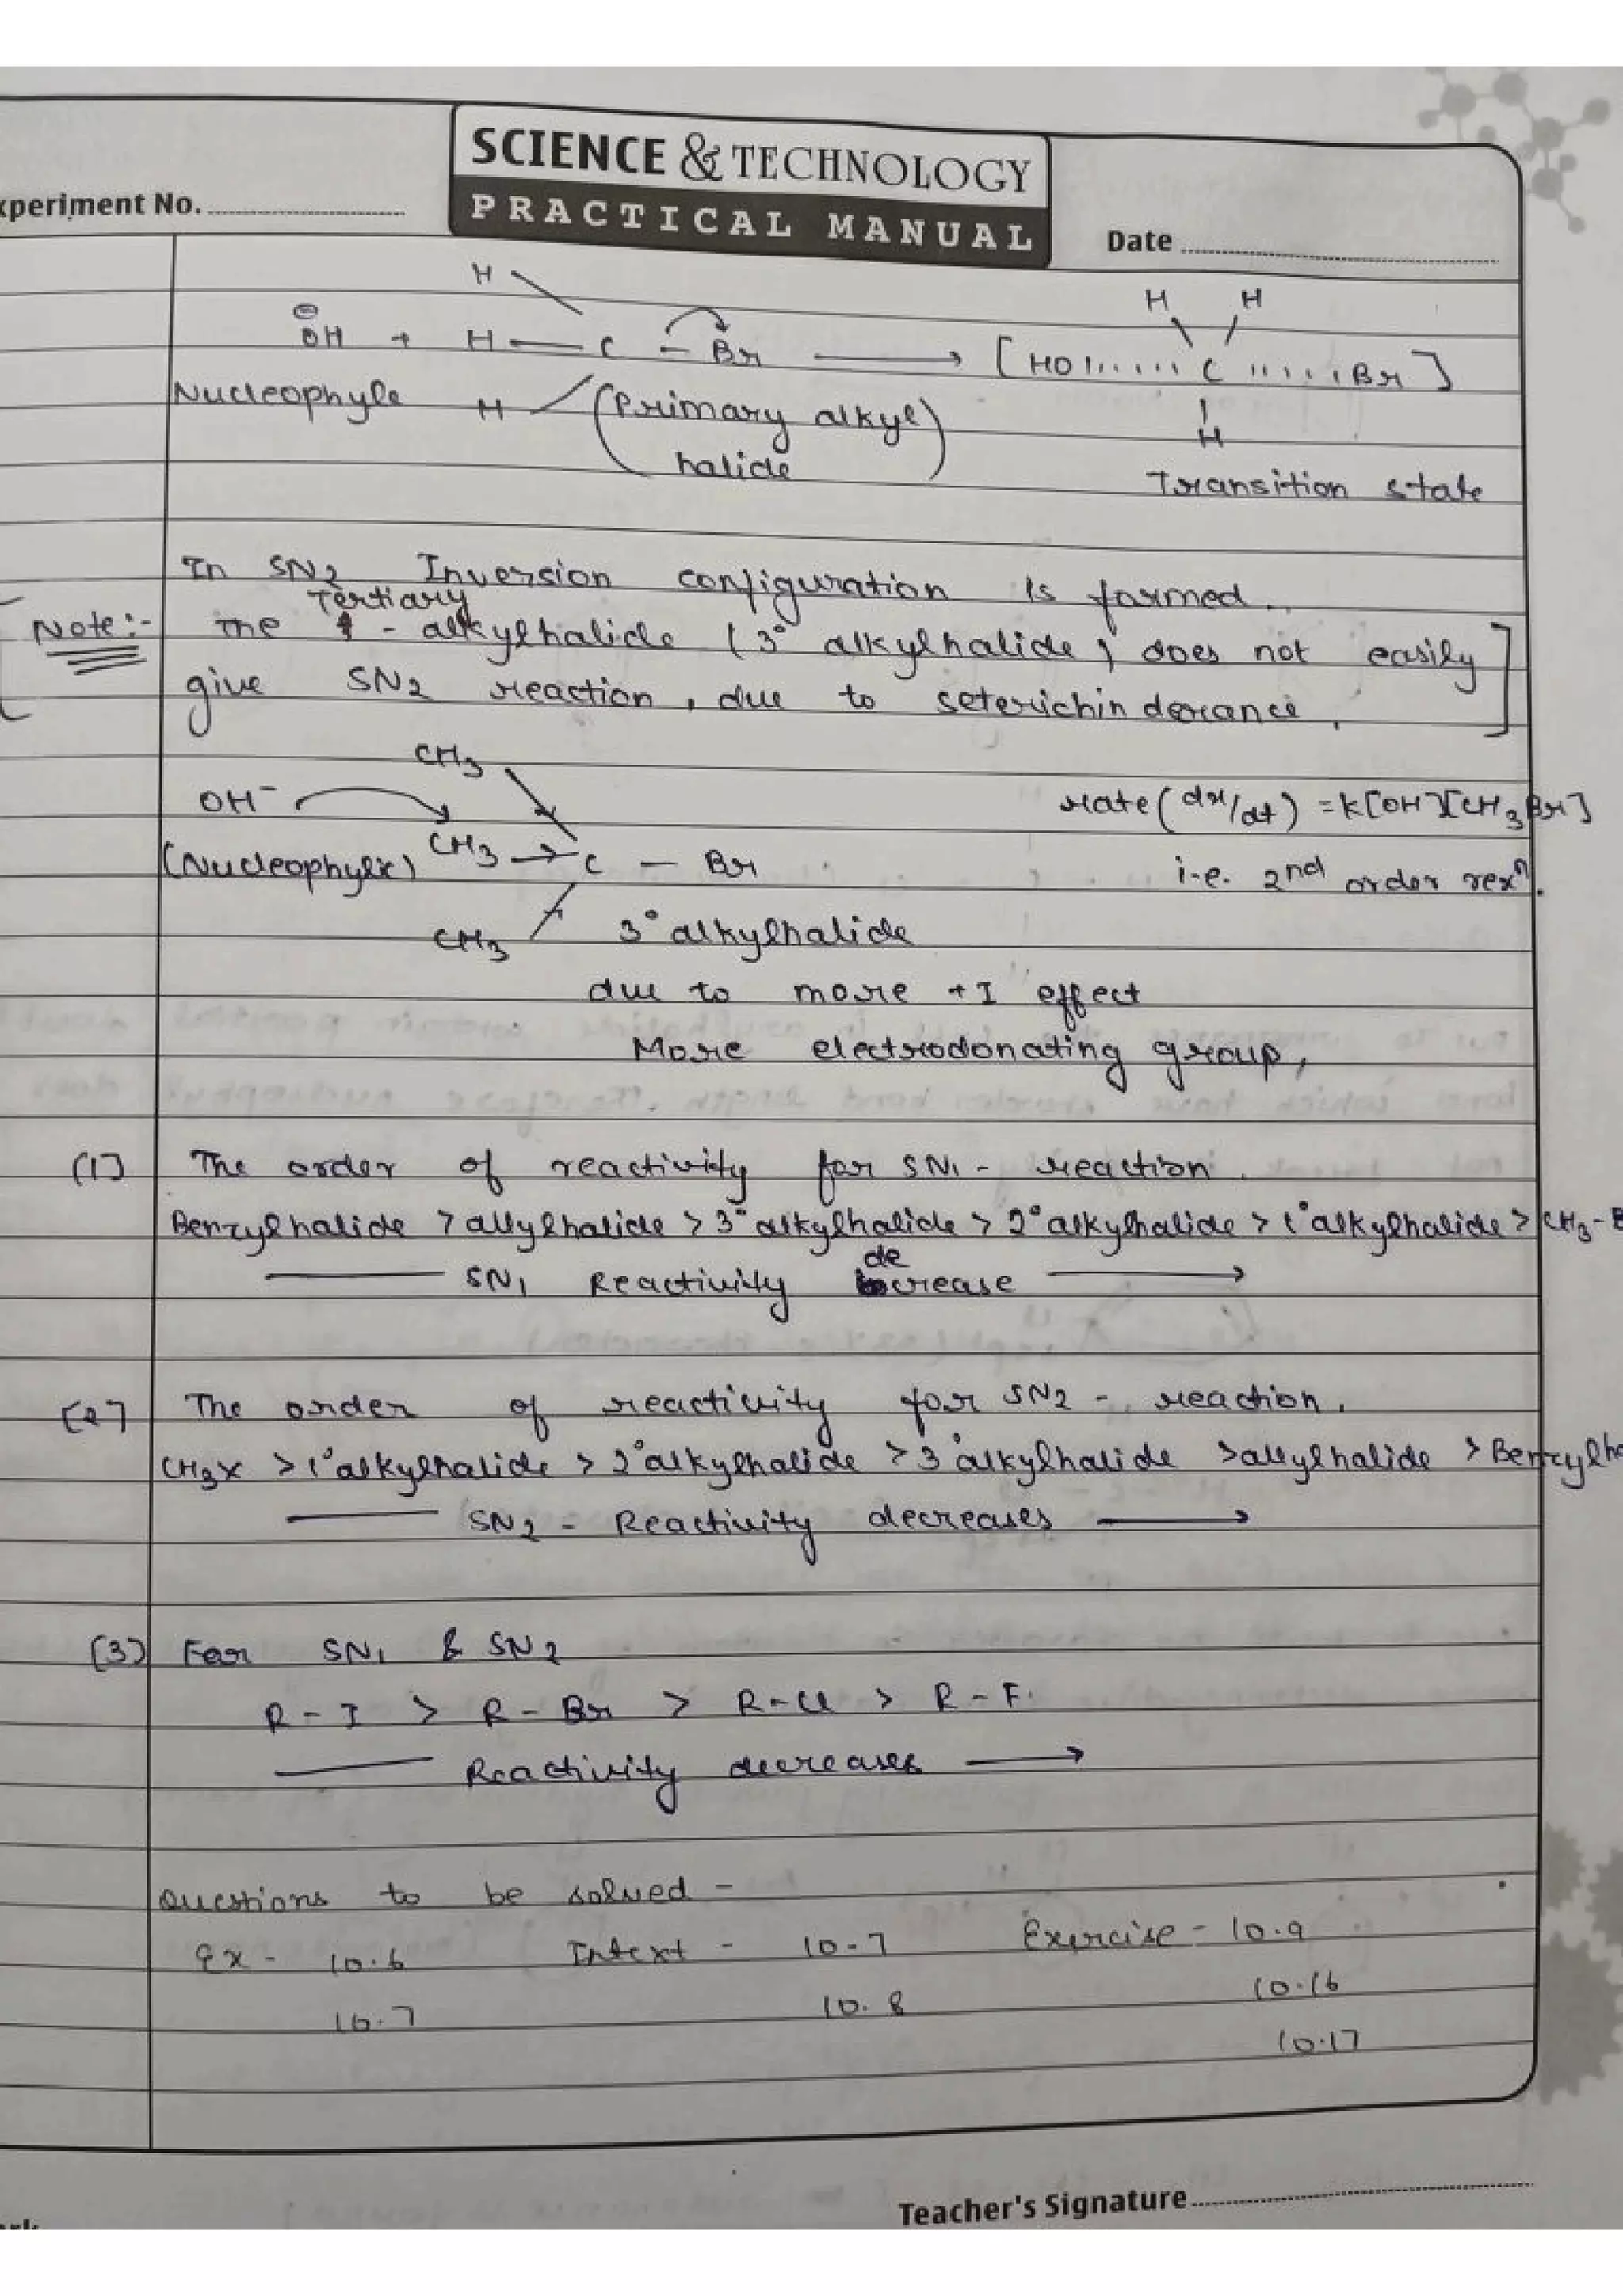 SCIENCE & TECHNOLOGY
PRACTICAL MANUAL
xperiment No.
Date
H H H
⊖
OH + H — C — Br ⟶ [HO ...... C ...... Br]
Nucleophyle H (Primary alkyl halide) H
Transition state
In SN2 Inversion configuration is formed.
Tertiary
Note:- The - alkylhalide (3° alkylhalide) does not easily
give SN2 reaction, due to seterichin derance,
CH3
OH⁻ rate (dx/dt) = K[OH][CH3Br]
(Nucleophylic) CH3 → C — Br i.e. 2nd order rexn.
CH3 3° alkylhalide
due to more +I effect
More electrodonating group,
(1) The order of reactivity for SN1 - reaction.
Benzylhalide > allylhalide > 3° alkylhalide > 2° alkylhalide > 1° alkylhalide > CH3-B
SN1 Reactivity decrease ⟶
(2) The order of reactivity for SN2 - reaction.
CH3X > 1° alkylhalide > 2° alkylhalide > 3° alkylhalide > allylhalide > Benzylha
SN2 - Reactivity decreases ⟶
(3) For SN1 & SN2
R - I > R - Br > R - Cl > R - F.
Reactivity decreases ⟶
Questions to be solved -
Ex - 10.6 Intext - 10.7 Exercise - 10.9
10.7 10.8 10.16
10.17
Teacher's Signature